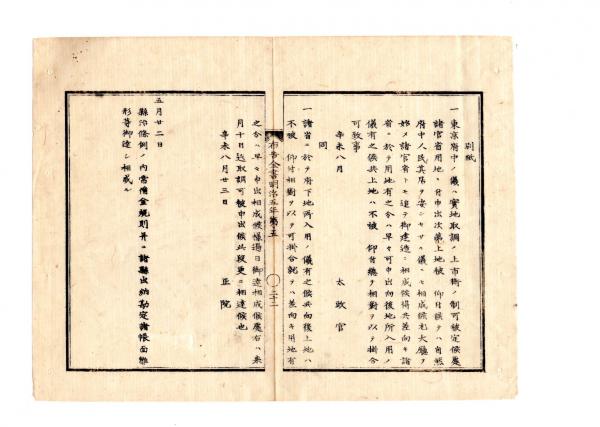 別紙
一東京府中ノ儀ハ實地取調ノ上市街ノ制可被定候處
諸官省用地ヽ自申出次第上地被 仰付候テハ自然
府中人民其居ヲ安シセサル儀ニモ相成候尤大廳ヲ
始メ諸官省トモ追々御建造ニ相成候得共差向キ諸
省ニ於テ用地有之分ハ早々可申出向後地所入用ノ
儀有之候共上地ハ不被 仰付總テ相對ヲ以テ掛合
可致事
辛未八月 太政官
同
一諸省ニ於テ府下地所入用ノ儀有之候共向後上地ハ
不被 仰付相對ヲ以テ可掛合就テハ差向キ用地有
布告全書明治五年第五
二十二
之分ハ早々申出相成候樣過日御達相成候處右ハ來
月十日迄取調可被申出候此段更ニ相達候也
辛未八月廿三日 正院
五月廿二日
縣治條例ノ内常備金規則并ニ諸縣出納勘定諸帳面雛
形等御達シ相成ル